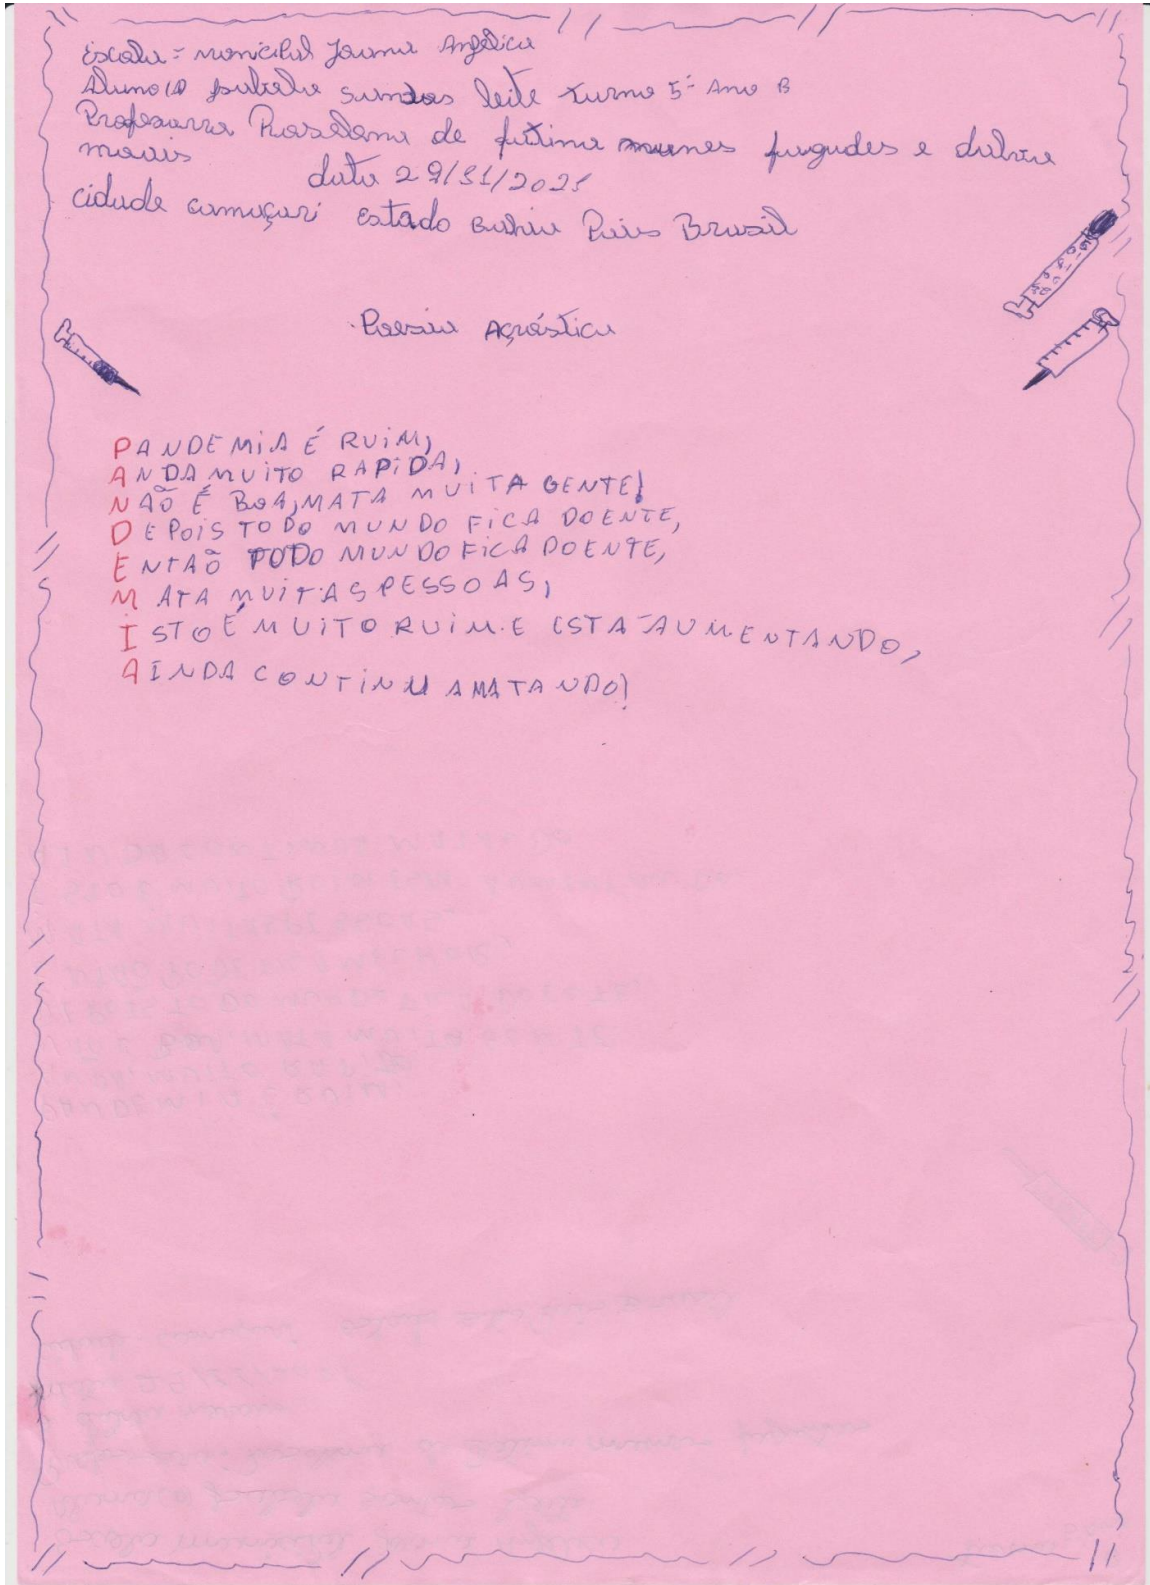 Escola = Monicipal Joana Angélica
Aluno(a) Isabela Santos leite turma 5º Ano B
Professora Roseleana de fátima nunes fagudes e
morais data 29/11/2021
cidade camaçari Estado Bahia País Brasil
Poesia Acróstica
PANDEMIA É RUIM,
ANDA MUITO RAPIDA,
NÃO É BOA, MATA MUITA GENTE!
DEPOIS TODO MUNDO FICA DOENTE,
ENTÃO TODO MUNDO FICA DOENTE,
MATA MUITAS PESSOAS,
ISTO É MUITO RUIM E ESTA AUMENTANDO,
AINDA CONTINUA MATANDO!